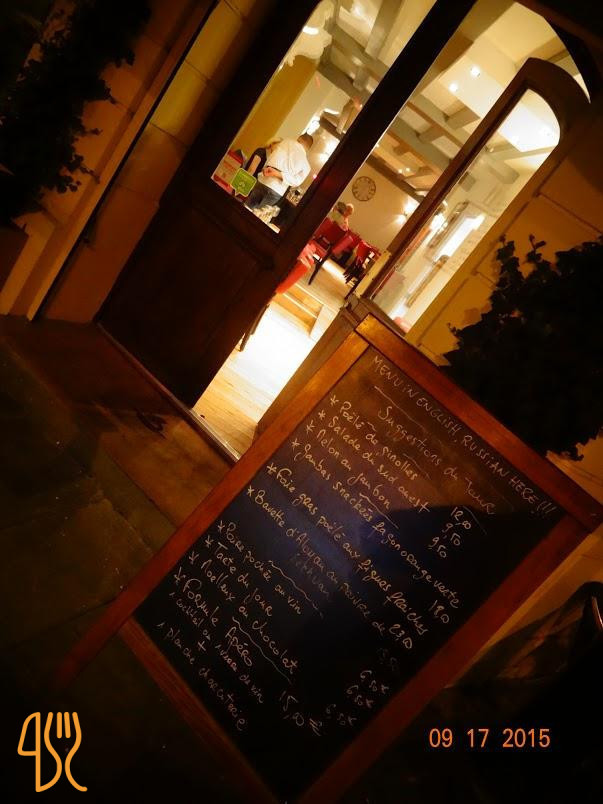 MENU IN ENGLISH, RUSSIAN HERE!!!
Suggestions du Jour
* Poêlé de girolles 12,00
* Salade du sud ouest 9,50
* Melon au jambon 9,50
* Gambas snackées façon orange vertte
18,0
* Foie gras poêlé aux figues fraiches
23,0
* Bavette d'Aloyau au poivre de
* Poire pochée au vin 6,50€
* Tarte du jour 6,50€
* Moelleux au chocolat 6,50€
* Formule Apéro
1 cocktail ou 1 verre de vin 15,00€
+
1 planche charcuterie
09 17 2015